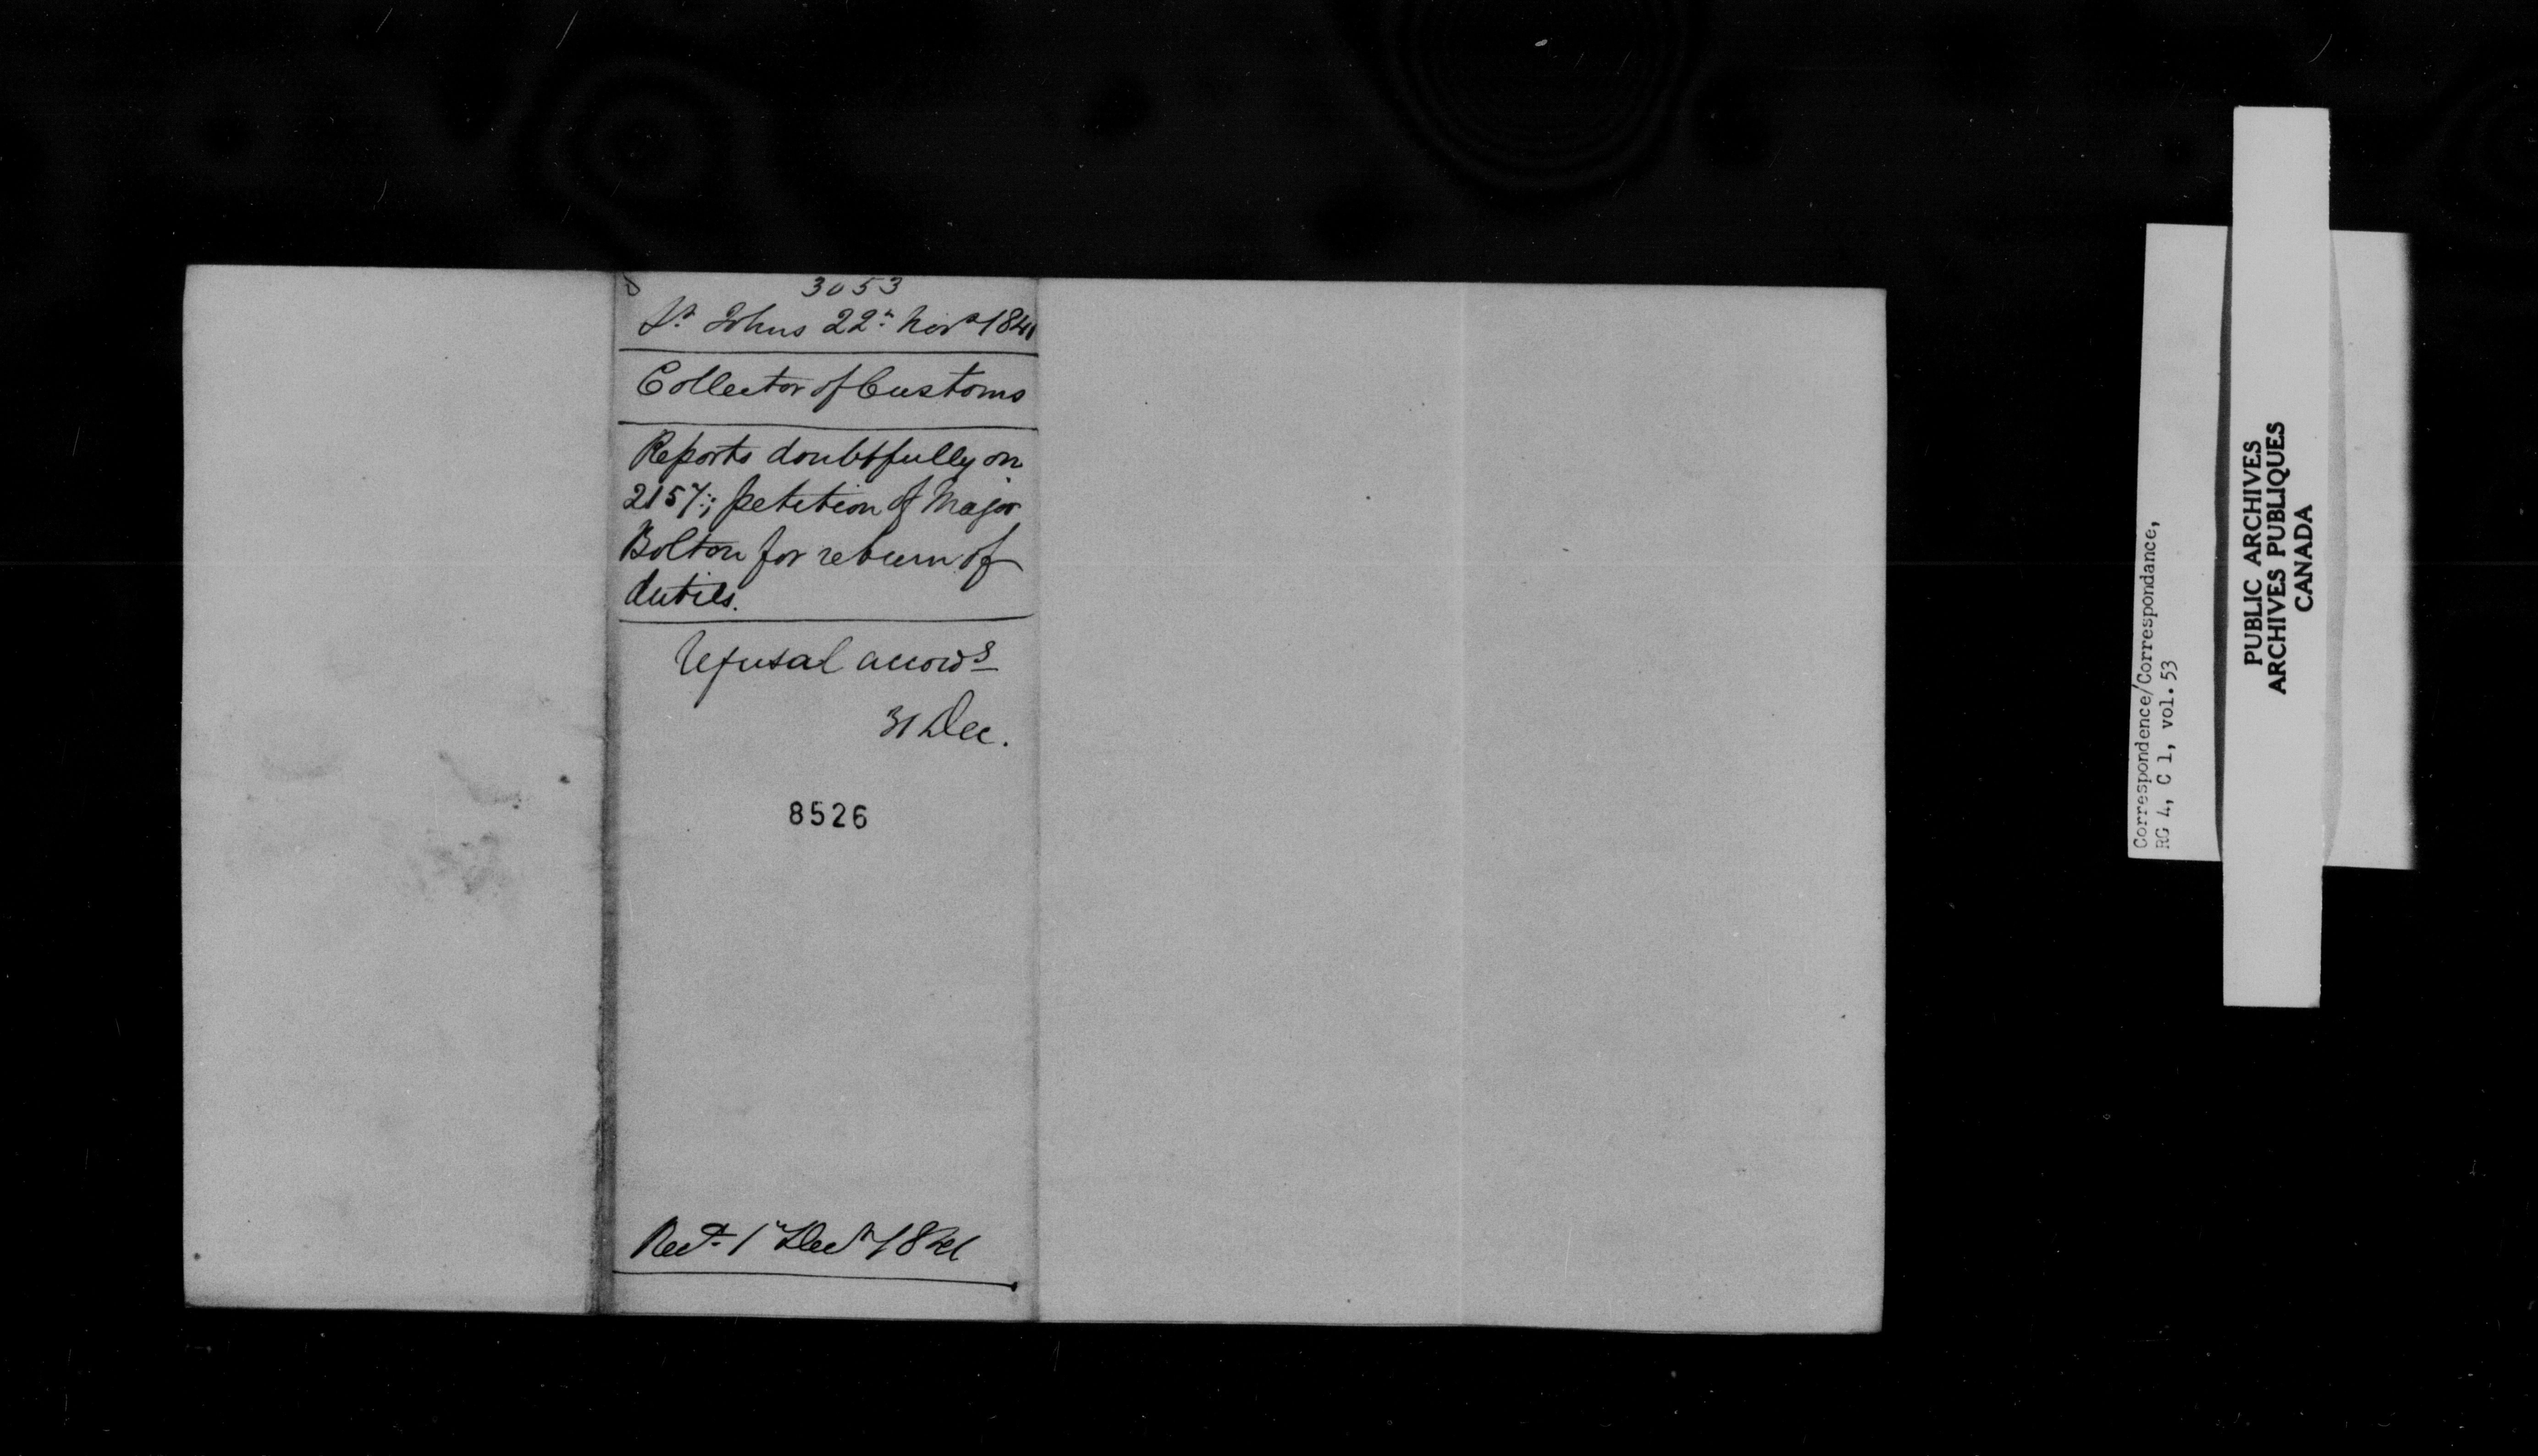 3053
St Johns 22n Novr 1841
Collector of Customs
Reports doubtfully on
2157; petition of Major
Bolton for return of
duties.
Refusal accords
31 Dec.
8526
Recd 1st Decr 1841
Correspondence/Correspondance,
RG 4, C 1, vol. 53
PUBLIC ARCHIVES
ARCHIVES PUBLIQUES
CANADA